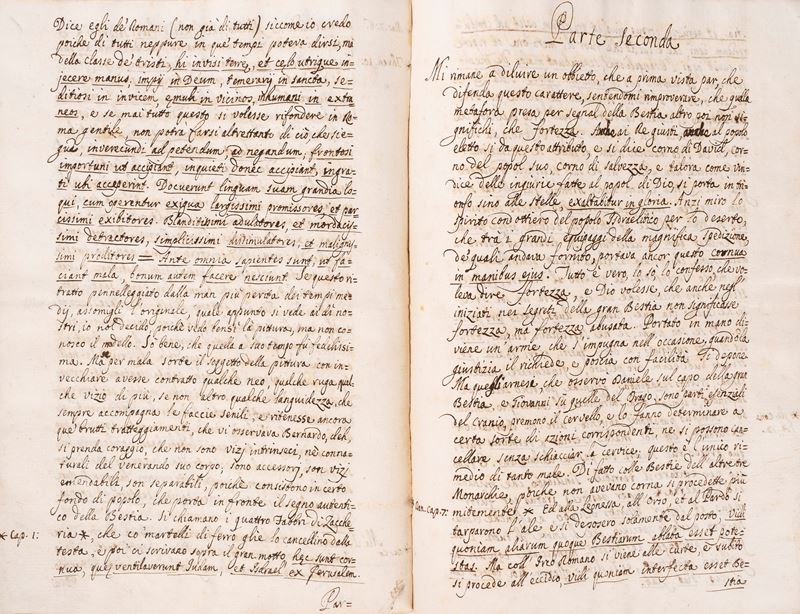 Dice egli de' Romani (non già di tutti) siccome io credo
poiche di tutti neppure in que' tempi poteva dirsi, ma
della classe de' tristi, hi invisi terre, et celo utrique in=
jecere manus, impij in Deum, temerarij in sancta, se=
ditiosi in invicem, emuli in vicinos, inhumani in extra
neos, e se mai tutto questo si volesse rifondere in Ro
ma gentile, non potrà farsi altrettanto di ciò che sie=
gue inverecundi ad petendum, ad negandum, frontosi
importuni ut accipiant, inquieti donec accipiant, ingra=
ti ubi acceperint. Docuerunt linguam suam grandia lo=
qui, cum operentur exigua largissimi promissores, et par
cissimi exibitores. Blanditissimi adulatores, et mordacis=
simi detractores, simplicissimi dissimulatores, et malignis=
simi proditores = Ante omnia sapientes sunt, ut fa=
ciant mala, bonum autem facere nesciunt. Se questo ri=
tratto pennelleggiato dalla man più perita dei tempi me=
dij, assomigli l'originale, quale appunto si vede ai dì no=
stri, io nol decido, poiche vedo bensì la pitura, ma non co=
nosco il modello. Sò bene, che quella a suo tempo fù fedelissi=
ma. Ma per mala sorte il soggetto della pitura con in=
vecchiare avesse contratto qualche neo, qualche ruga, qual
che vizio di più, se non altro qualche languidezza, che
sempre accompagna le faccie senili, e ritenesse ancora
que' brutti tratteggiamenti, che vi osservava Bernardo, deh,
si prenda coraggio, che non sono vizj intrinseci, ne conna=
turali del venerando suo corpo, sono accessorj, son vizj
emendabili, son separabili, poiche consistono in certo
fondo di popolo, che porta in fronte il segno autenti=
co della Bestia. Si chiamano i quattro Fabbri di Zacche
* Cap. 1: ria *, che co' martelli di ferro glie lo cancellino dalla
testa, e poi ci scrivano sopra il gran motto, hæc sunt cor=
nua, quæ ventilaverunt Judam, et Isdrael et Jerusalem.
Par=
Parte seconda
Mi rimane a diluire un obbietto, che a prima vista par, che
difenda questo carattere, sentendomi rimproverare, che quella
metafora presa per segnal della Bestia altro poi non si=
gnifichi, che fortezza. Anche ai Re giusti, anche al popolo
eletto si dà questo attributo, e si dice corno di David, cor=
no del popol suo, corno di salvezza, e talora come vin=
dice delle ingiurie fatte al popol di Dio, si porta in tri=
onfo sino alle stelle, exaltabitur in gloria. Anzi miro lo
Spirito condottiero del popolo Isdraelitico per lo deserto,
che trà i grandi equipaggi della magnifica spedizione,
de' quali andava fornito, portava ancor questo cornua
in manibus ejus. Tutto è vero, lo sò, lo confesso, che vo=
leva dire fortezza, e Dio volesse, che anche negl'
iniziati nei segreti della gran Bestia non significasse
fortezza, ma fortezza abusata. Portato in mano di=
viene un arme che s'impugna nell'occasione, quando la
giustizia il richiede, e poscia con facilità si depone.
Ma quegli arnesi, che osservò Daniele sul capo della gran
Bestia, e Giovanni sù quelle del Drago, sono parti essenziali
del cranio, premono il cervello, e lo fanno determinare a
certa sorte di azioni corrispondenti, ne si possono can=
cellare senza schiacciar la cervice, questo è l'unico ri=
medio di tanto male. Di fatto colle Bestie dell'altre tre
Monarchie, poiche non avevano corna si procedette più
Cap. 7: mitemente * Ed alla Leonessa, all'Orso, ed al Pardo si
tarparono l'ale, e si deposero solamente dal posto, vidi
quoniam aliarum quoque Bestiarum ablata esset pote=
stas. Ma coll'Irco Romano si viene alle curte, e subito
si procede all'eccidio, vidi quoniam interfecta esset Be=
stia